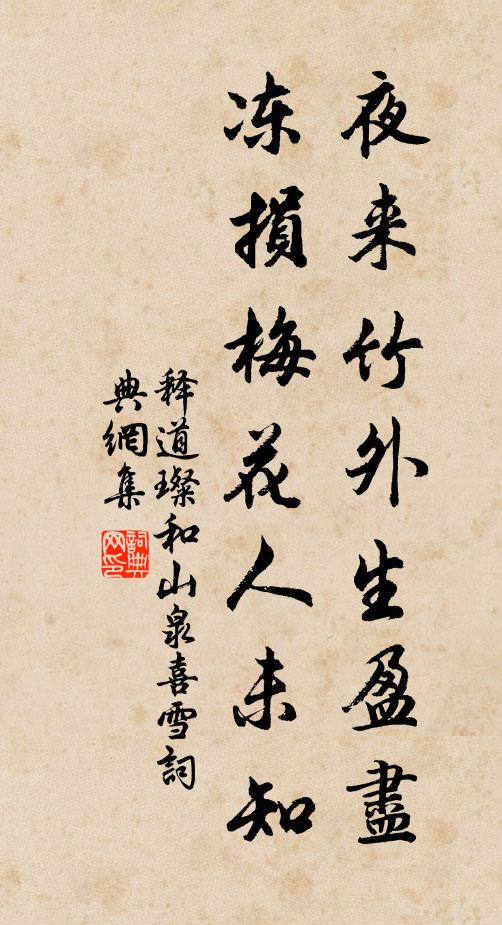 夜来竹外生盈盡
冻損梅花人未知
释道璨和山泉喜雪詞
典網集
詞典网印